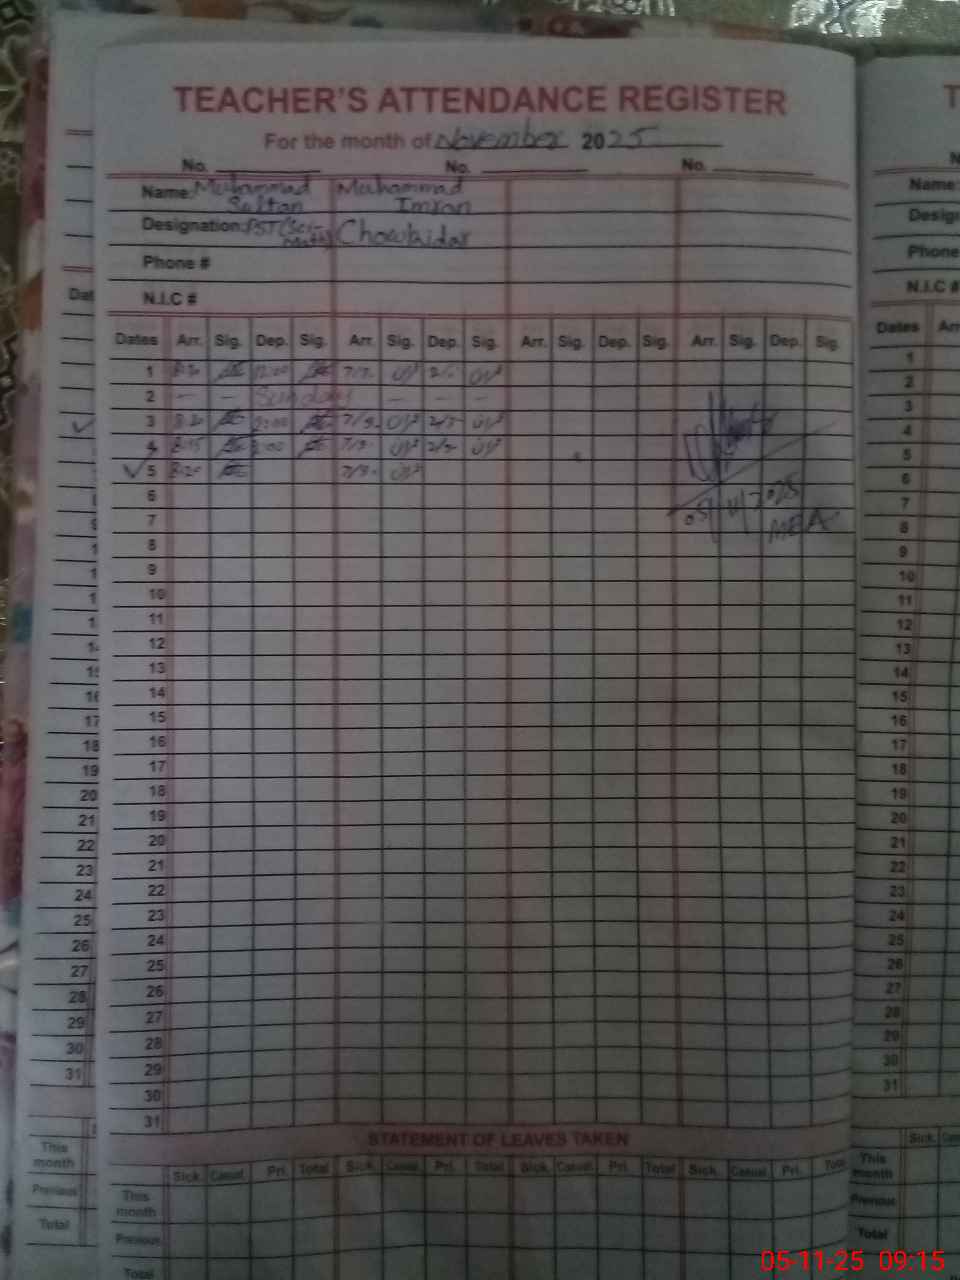 TEACHER'S ATTENDANCE REGISTER
For the month of November 2025
No. No. No.
Name: Muhammad Sultan Muhammad Imran
Designation: PST (Sci-Math) Chowkidar
Phone #
N.I.C #
Dates Arr. Sig. Dep. Sig. Arr. Sig. Dep. Sig. Arr. Sig. Dep. Sig. Arr. Sig. Dep. Sig.
1 8:20 12:00
2 — — Sunday — — —
3 8:20 2:00
4 8:15 2:00
5 8:20
6
7
8
9
10
11
12
13
14
15
16
17
18
19
20
21
22
23
24
25
26
27
28
29
30
31
05/11/2025
MEA
STATEMENT OF LEAVES TAKEN
Sick. Casual. Pri. Total Sick. Casual. Pri. Total Sick. Casual. Pri. Total Sick. Casual. Pri. Total
This month
Previous
Total
Dat
9
16
17
18
19
20
21
22
23
24
25
26
27
28
29
30
31
This month
Previous
Total
T
N
Name:
Desig
Phone
N.I.C #
Dates Arr
1
2
3
4
5
6
7
8
9
10
11
12
13
14
15
16
17
18
19
20
21
22
23
24
25
26
27
28
29
30
31
Sick.
This month
Previous
Total
05-11-25 09:15